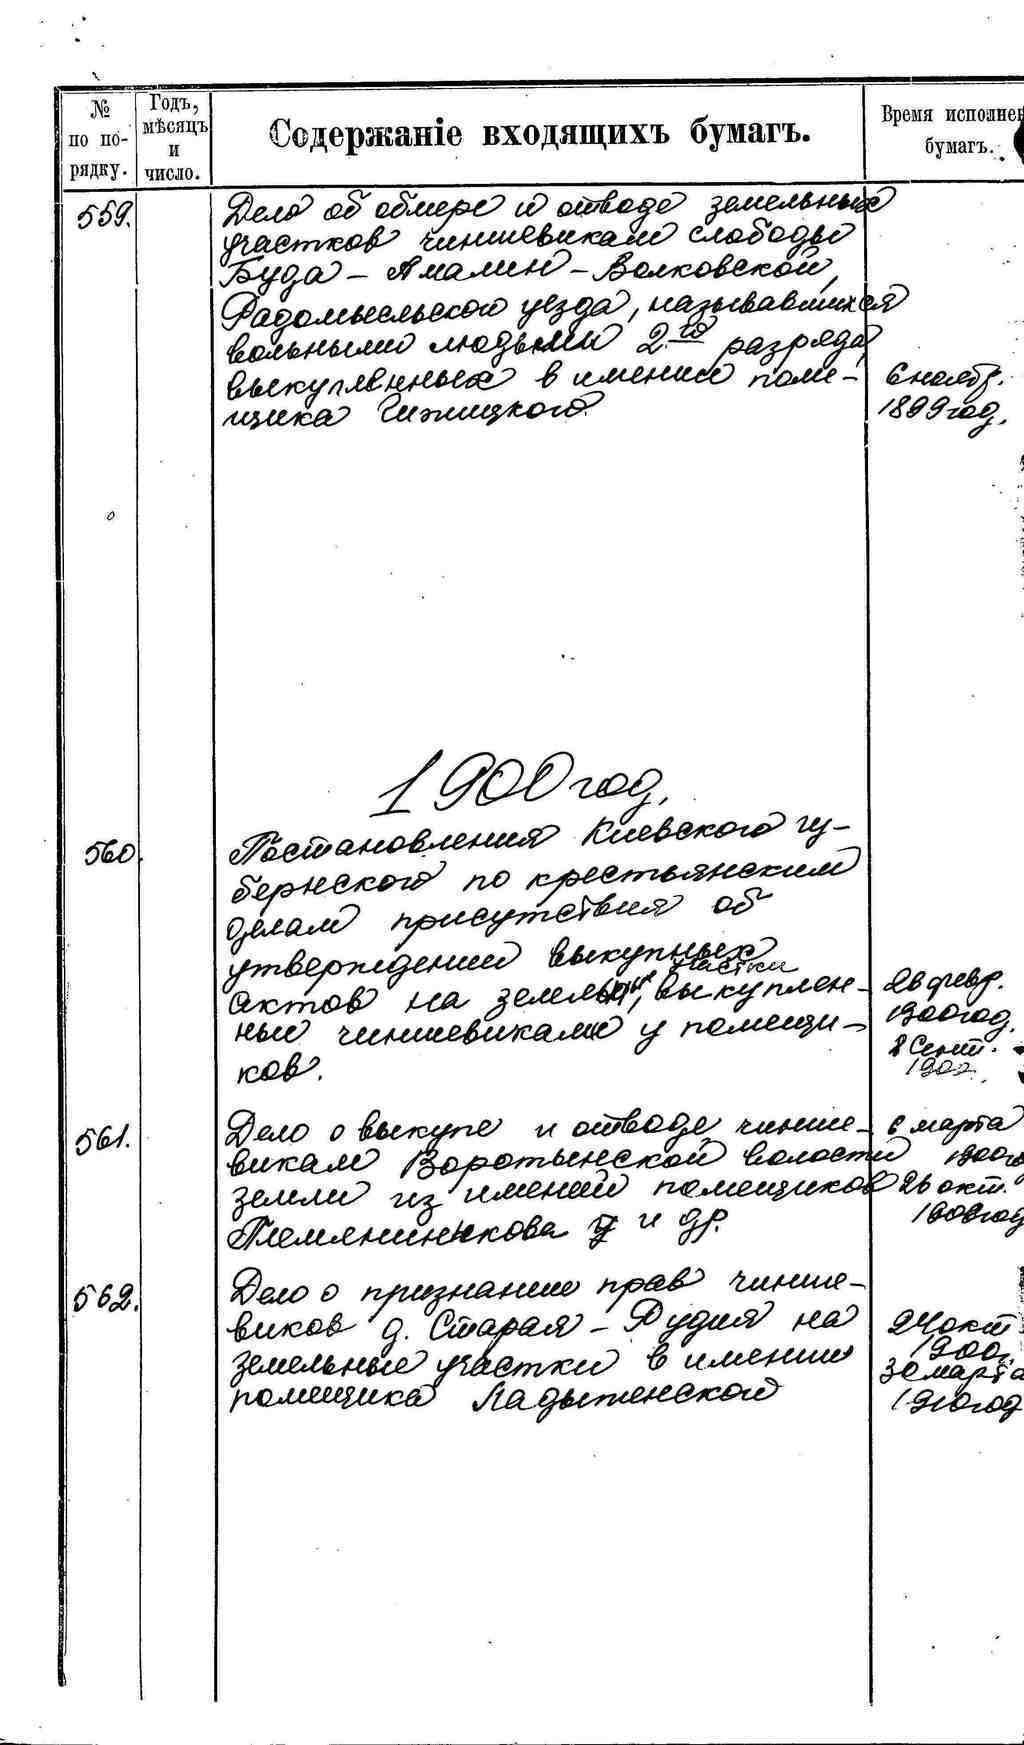 №
по по-
рядку.
Годъ,
мѣсяцъ
и
число.
Содержаніе входящихъ бумагъ.
Время исполнен
бумагъ.
559.
Дело об обмере и отводе земельных
участков чиншевикам слободы
Буда - Амалин - Волковской,
Радомысльского уезда, называвшихся
вольными людьми 2го разряда,
выкупленных в имении поме-
щика Гижицкого.
6 ноябр.
1899 год.
1900 год.
560.
Постановления Киевского гу-
бернского по крестьянским
делам присутствия об
утверждении выкупных
участки
актов на земельные, выкуплен-
ные чиншевиками у помещи-
ков.
26 февр.
1900 год.
8 Сент.
1902
561.
Дело о выкупе и отводе чинше-
викам Воротынской волости
земли из имений помещиков
Племянникова и др.
6 марта
1900го
26 окт.
1908 год
562.
Дело о признании прав чинше-
виков д. Старая - Рудня на
земельные участки в имении
помещика Ладыженской
24 окт
1900г.
30 марта
1910 год